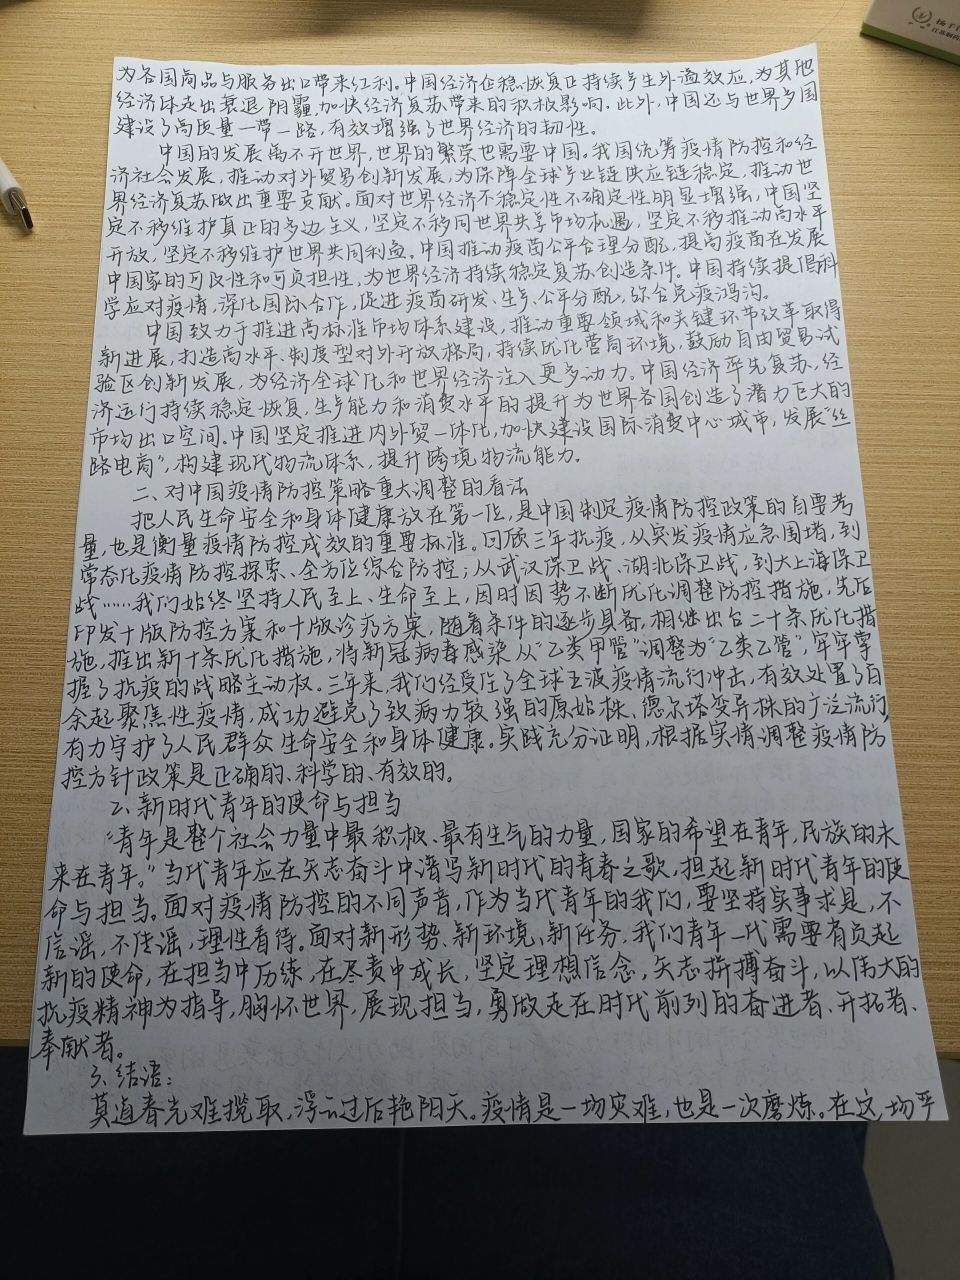 为各国商品与服务出口带来红利。中国经济企稳恢复正持续产生外溢效应，为其他
经济体走出衰退阴霾，加快经济复苏带来的积极影响。此外，中国还与世界多国
建设了高质量一带一路，有效增强了世界经济的韧性。
中国的发展离不开世界，世界的繁荣也需要中国。我国统筹疫情防控和经
济社会发展，推动对外贸易创新发展，为保障全球产业链供应链稳定，推动世
界经济复苏做出重要贡献。面对世界经济不稳定性不确定性明显增强，中国坚
定不移维护真正的多边主义，坚定不移同世界共享市场机遇，坚定不移推动高水平
开放，坚定不移维护世界共同利益。中国推动疫苗公平合理分配，提高疫苗在发展
中国家的可及性和可负担性，为世界经济持续稳定复苏创造条件。中国持续提倡科
学应对疫情，深化国际合作，促进疫苗研发、生产、公平分配，弥合免疫鸿沟。
中国致力于推进高标准市场体系建设，推动重要领域和关键环节改革取得
新进展，打造高水平、制度型对外开放格局，持续优化营商环境，鼓励自由贸易试
验区创新发展，为经济全球化和世界经济注入更多动力。中国经济率先复苏，经
济运行持续稳定恢复，生产能力和消费水平的提升为世界各国创造了潜力巨大的
市场出口空间。中国坚定推进内外贸一体化，加快建设国际消费中心城市，发展“丝
路电商”，构建现代物流体系，提升跨境物流能力。
二、对中国疫情防控策略重大调整的看法
把人民生命安全和身体健康放在第一位，是中国制定疫情防控政策的首要考
量，也是衡量疫情防控成效的重要标准。回顾三年抗疫，从突发疫情应急围堵，到
常态化疫情防控探索、全方位综合防控；从武汉保卫战、湖北保卫战，到大上海保卫
战……我们始终坚持人民至上、生命至上，因时因势不断优化调整防控措施，先后
印发十版防控方案和十版诊疗方案，随着条件的逐步具备，相继出台二十条优化措
施，推出新十条优化措施，将新冠病毒感染从“乙类甲管”调整为“乙类乙管”，牢牢掌
握了抗疫的战略主动权。三年来，我们经受住了全球五波疫情流行冲击，有效处置了百
余起聚焦性疫情，成功避免了致病力较强的原始株、德尔塔变异株的广泛流行，
有力守护了人民群众生命安全和身体健康。实践充分证明，根据实情调整疫情防
控方针政策是正确的、科学的、有效的。
三、新时代青年的使命与担当
“青年是整个社会力量中最积极、最有生气的力量，国家的希望在青年，民族的未
来在青年。”当代青年应在矢志奋斗中谱写新时代的青春之歌，担起新时代青年的使
命与担当。面对疫情防控的不同声音，作为当代青年的我们，要坚持实事求是，不
信谣，不传谣，理性看待。面对新形势、新环境、新任务，我们青年一代需要肩负起
新的使命，在担当中历练，在尽责中成长，坚定理想信念，矢志拼搏奋斗，以伟大的
抗疫精神为指导，胸怀世界，展现担当，勇做走在时代前列的奋进者、开拓者、
奉献者。
3、结语：
莫道春光难揽取，浮云过后艳阳天。疫情是一场灾难，也是一次磨炼。在这场平